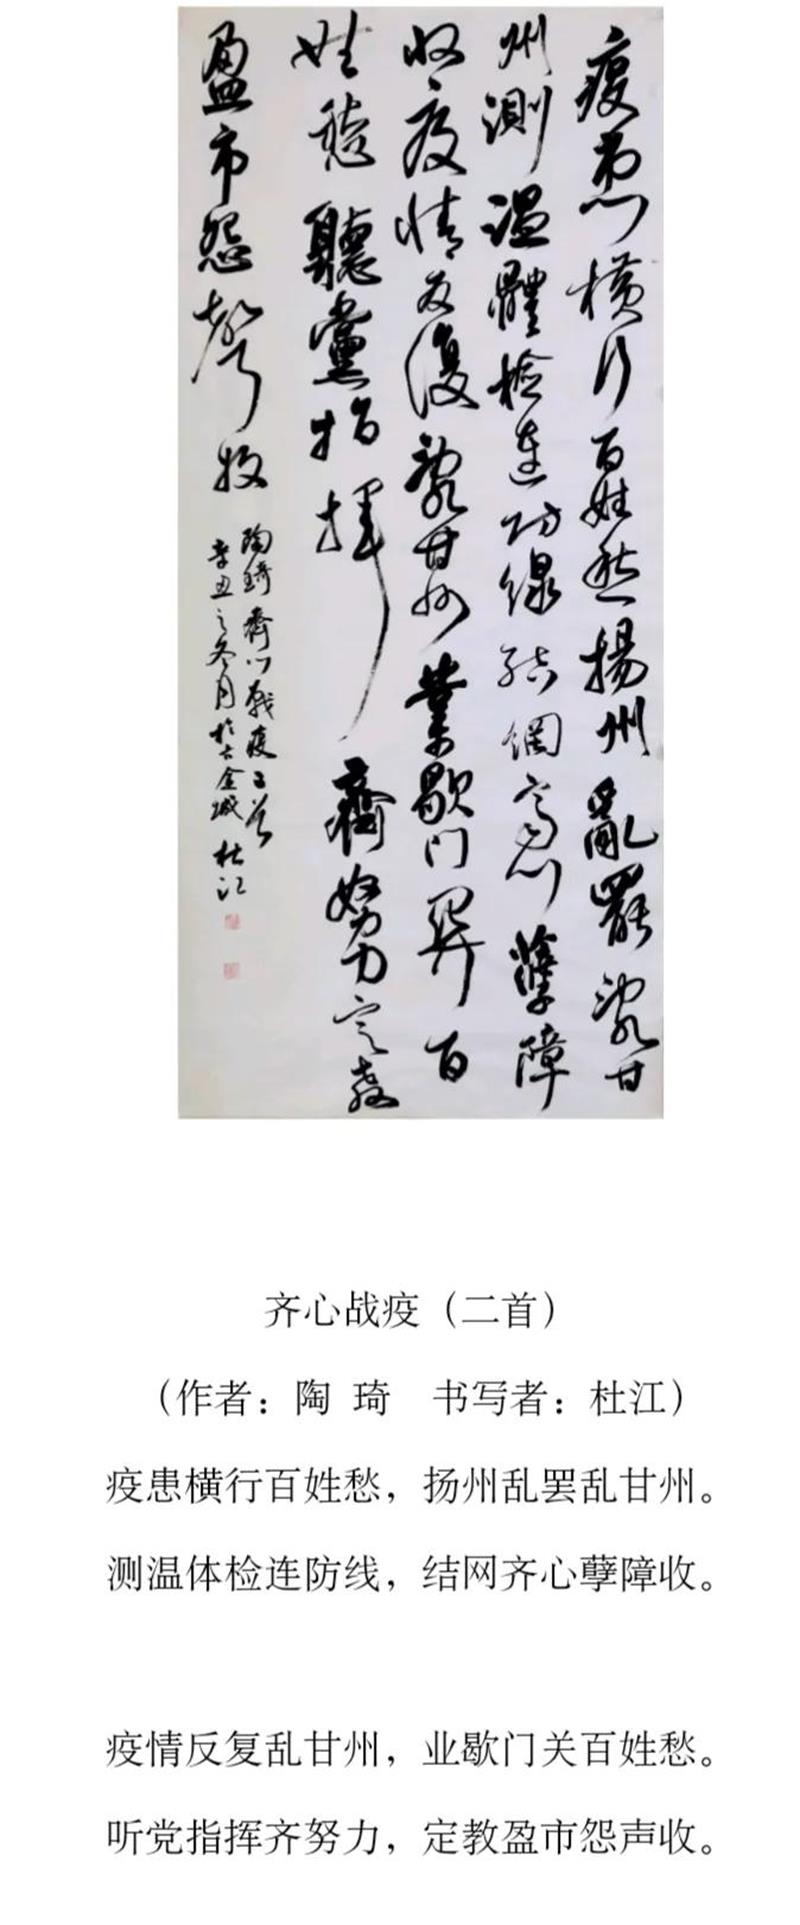 疫患橫行百姓愁揚州亂罷亂甘
州測溫體檢連防線結網齊心孽障
收疫情反復亂甘州業歇門關百
姓愁聽黨指揮齊努力定教
盈市怨聲收
陶琦齊心戰疫二首
辛丑之冬月於金城 杜江
齐心战疫（二首）
（作者：陶 琦 书写者：杜江）
疫患横行百姓愁，扬州乱罢乱甘州。
测温体检连防线，结网齐心孽障收。
疫情反复乱甘州，业歇门关百姓愁。
听党指挥齐努力，定教盈市怨声收。